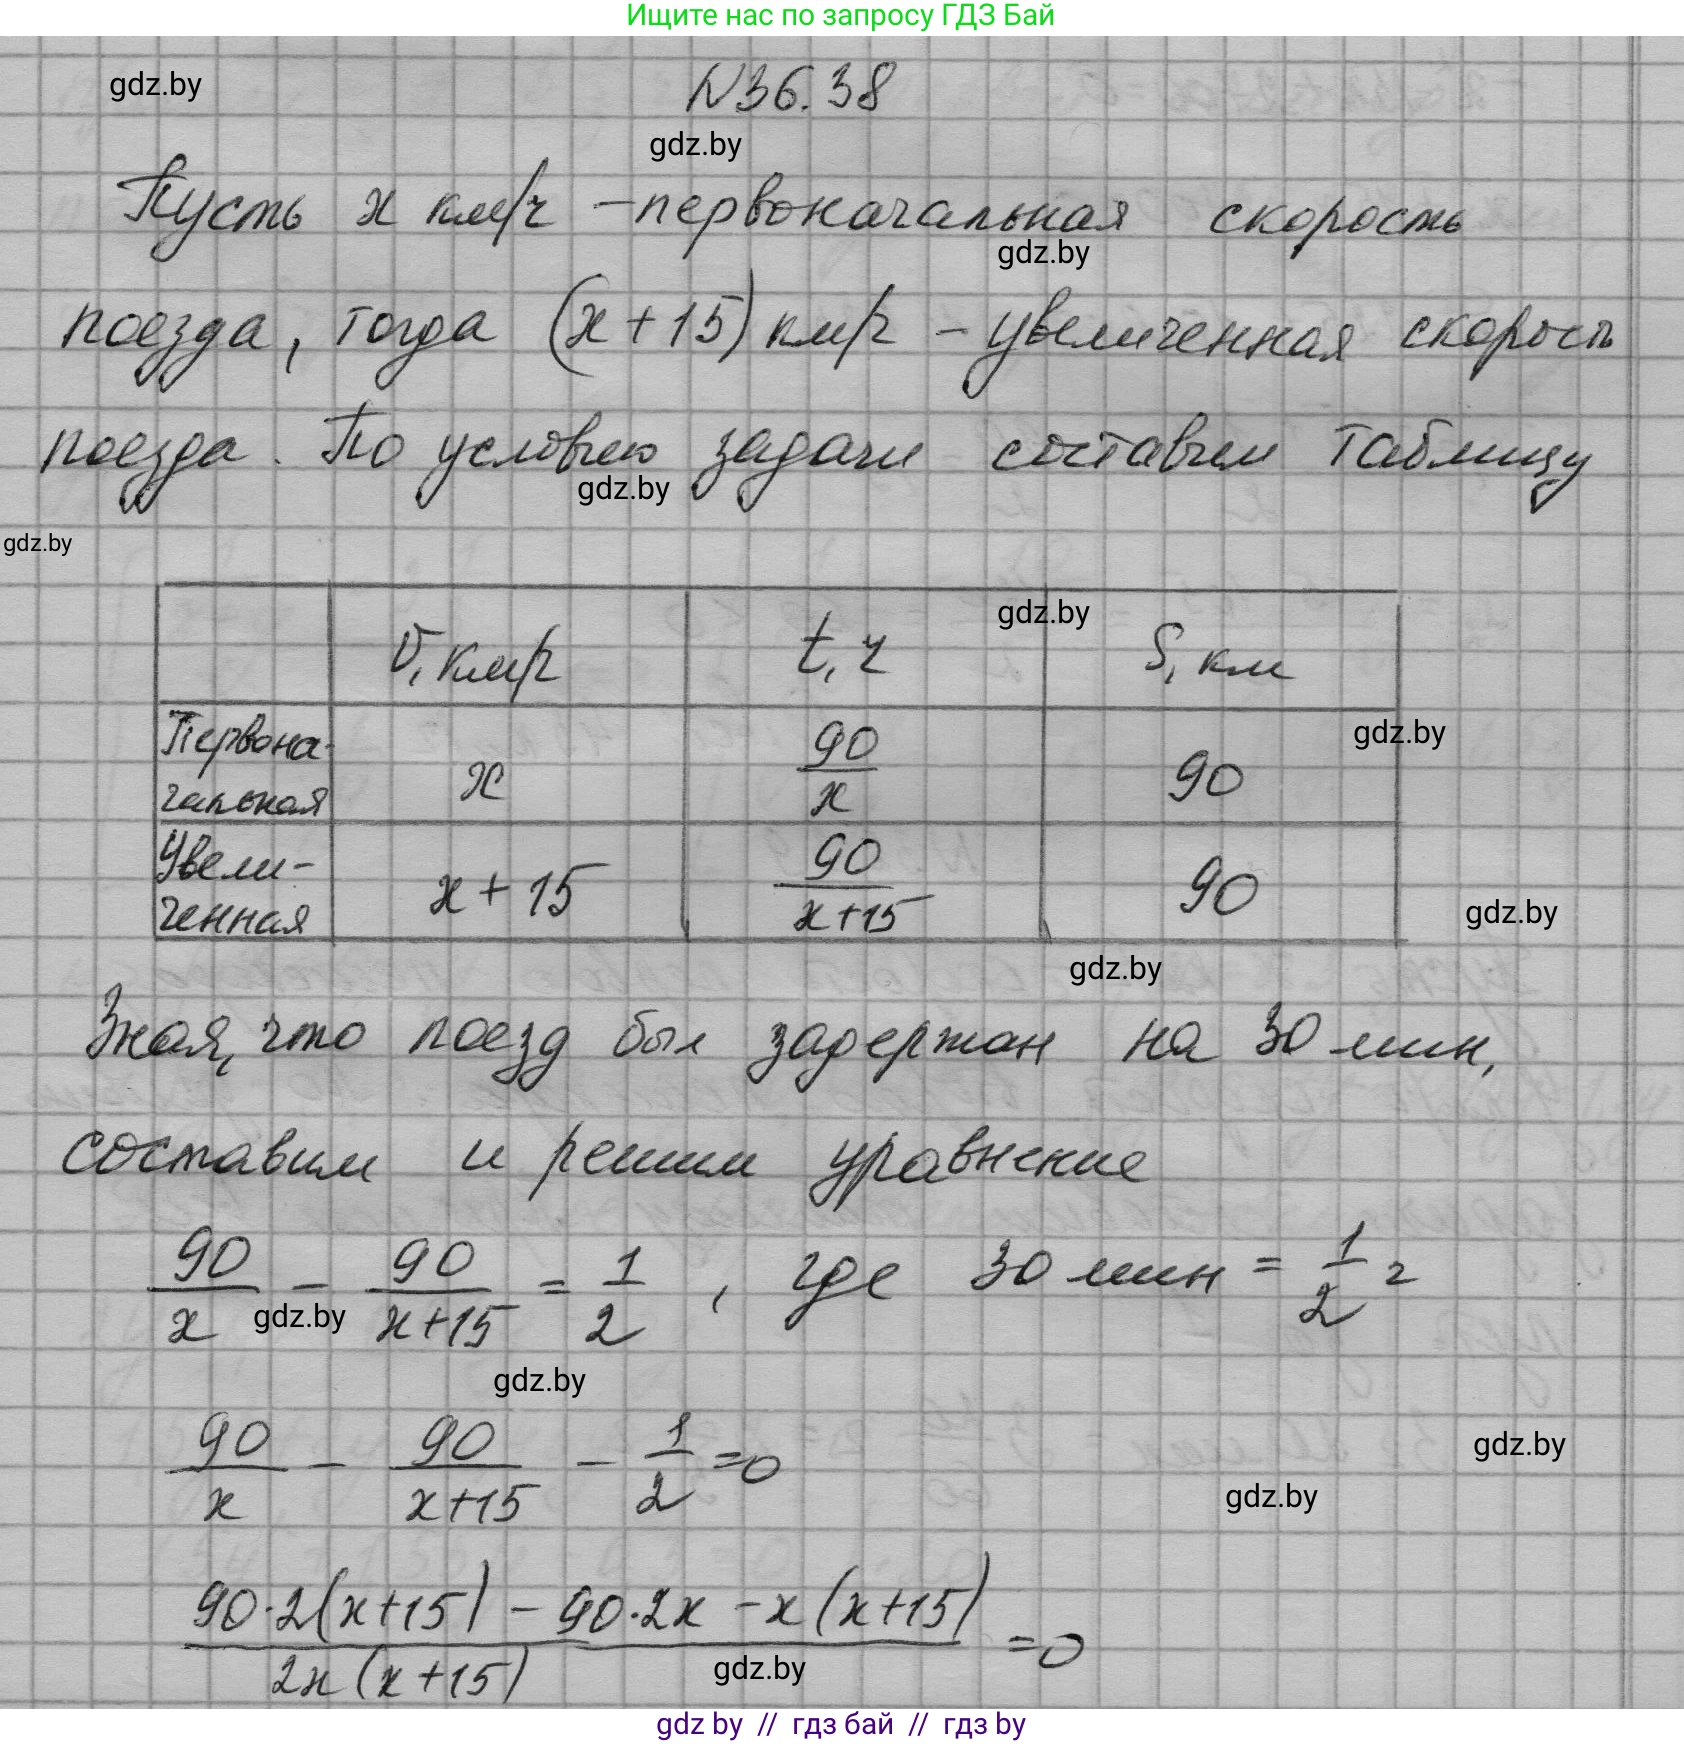 Ищите нас по запросу ГДЗ Бай
gdz.by
N36.38
gdz.by
Пусть x км/ч - первоначальная скорость
gdz.by
поезда, тогда (x+15) км/ч - увеличенная скорость
поезда. По условию задачи составим таблицу
gdz.by
gdz.by
gdz.by
V, км/ч t, ч S, км
gdz.by
Первона-
чальная x 90/x 90
Увели-
ченная x+15 90/(x+15) 90
gdz.by
gdz.by
Зная, что поезд был задержан на 30 мин,
составим и решим уравнение
90/x - 90/(x+15) = 1/2, где 30 мин = 1/2 ч
gdz.by
gdz.by
90/x - 90/(x+15) - 1/2 = 0
gdz.by
gdz.by
(90·2(x+15) - 90·2x - x(x+15))/(2x(x+15)) = 0
gdz.by
gdz by // гдз бай // гдз by